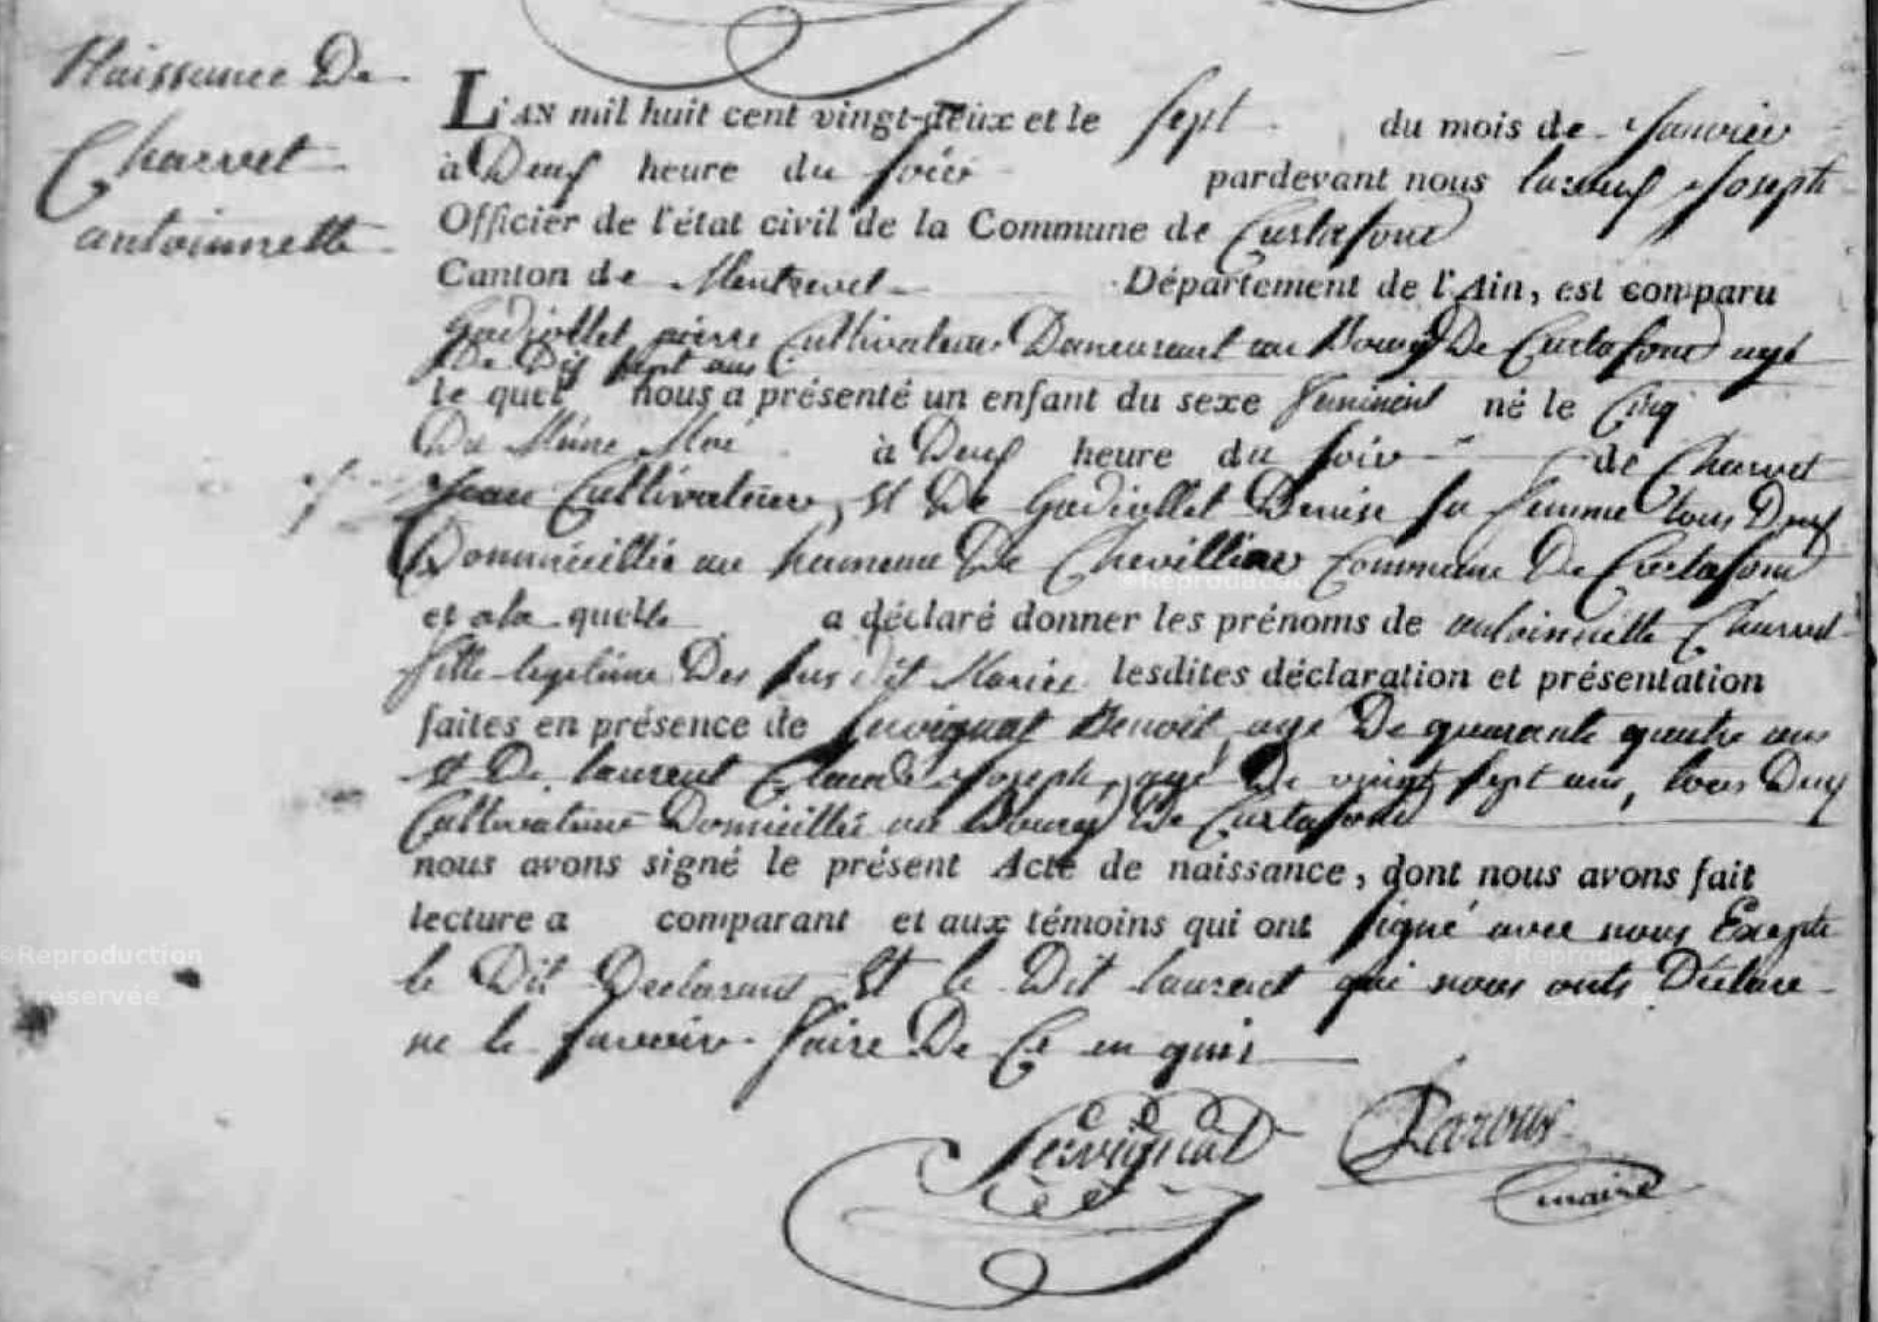 Naissance De
Charvet
antoinnette
L'AN mil huit cent vingt-deux et le sept du mois de Janvier
à Deux heure du soir pardevant nous Joseph
Officier de l'état civil de la Commune de Curtafond
Canton de Montrevel Département de l'Ain, est comparu
Gadiollet pierre Cultivateur Demeurant au Bourg De Curtafond agé
De Dix sept ans
le quel nous a présenté un enfant du sexe feminin né le Cinq
Du Même Moi à Deux heure du soir de Charvet
Jean Cultivateur, Et De Gadiollet Denise sa femme tous Deux
Domicillié au hameau De Commune De Curtafond
et a la quelle a déclaré donner les prénoms de antoinnette Charvet
fille legitime Des sus dit Mariée lesdites déclaration et présentation
faites en présence de Servignat Benoit, age De quarante quatre ans
Et De laurent Claude Joseph, agé De vingt sept ans, tous Deux
Cultivateurs Domicillié au Bourg De Curtafond
nous avons signé le présent Acte de naissance, dont nous avons fait
lecture a comparant et aux témoins qui ont signé avec nous Excepte
le Dit Declarant Et le Dit laurent qui nous onts Declare
ne le savoir faire De Ce en quis
Servignat
maire
©Reproduction
réservée
©Reproduction
©Reproduction